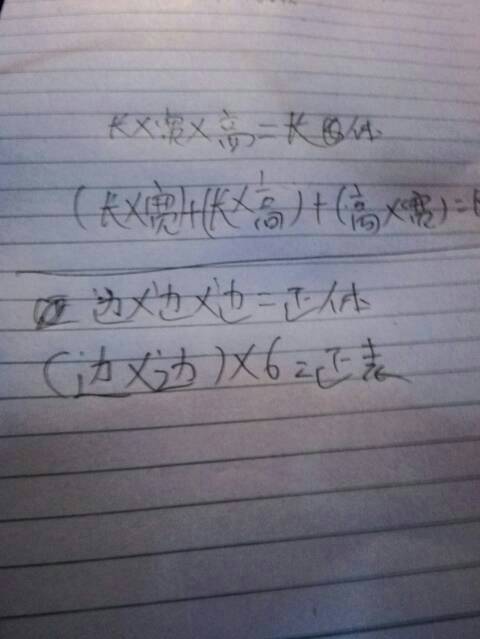 长×宽×高=长体
(长×宽)+(长×高)+(高×宽)=
边×边×边=正体
(边×边)×6=正表